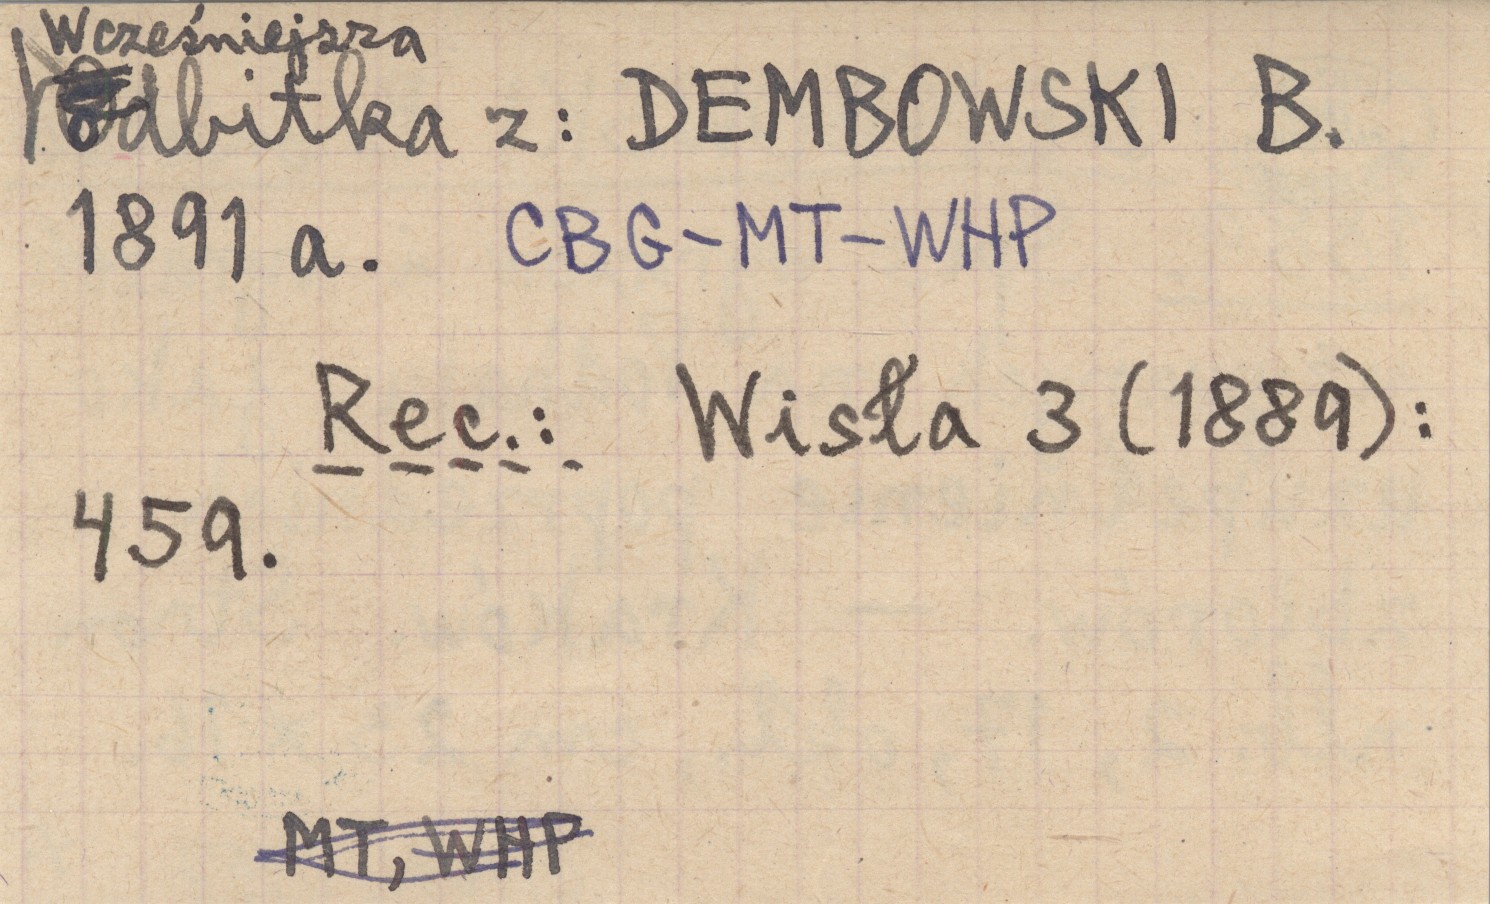 Wcześniejsza
odbitka z: DEMBOWSKI B.
1891 a. CBG-MT-WHP
Rec.: Wisła 3 (1889):
459.
MT, WHP